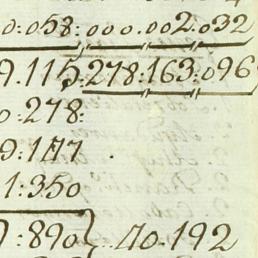 0.058:000.002.032
9.115:278:163:096
0.278:
9:177.
1:350
9:890} 40.192